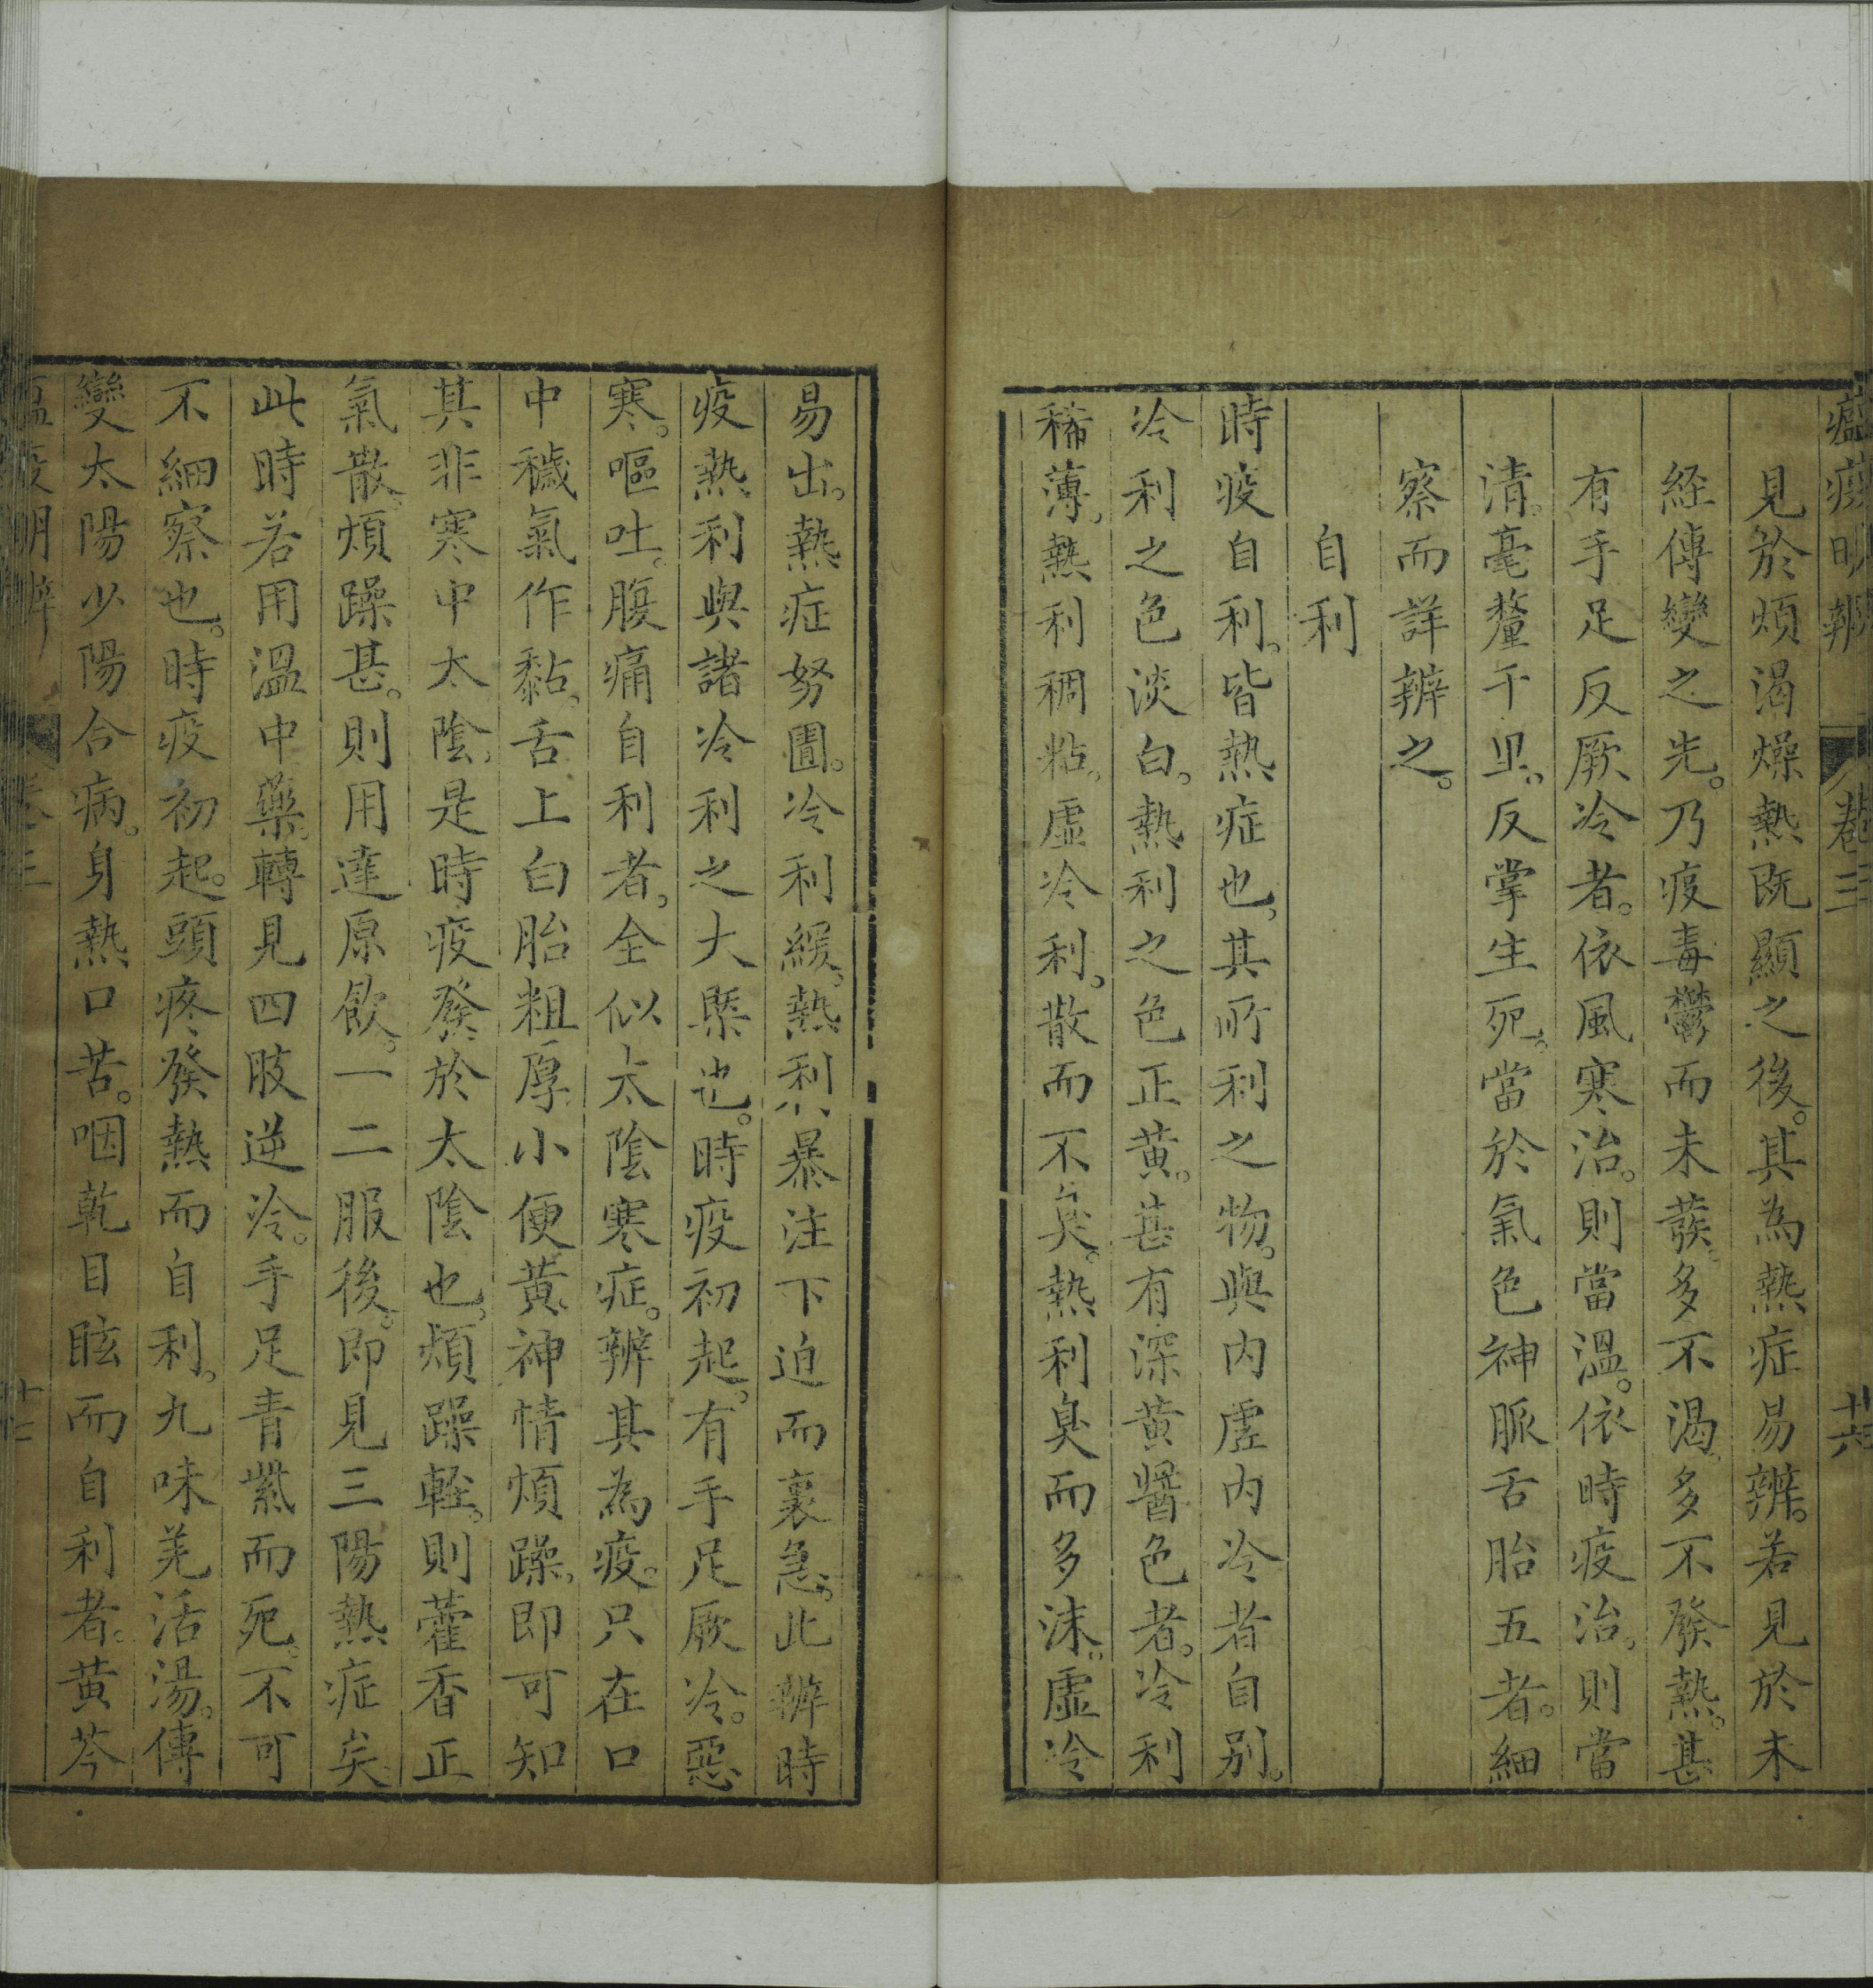 瘟疫明辨 卷三 十六
見於煩渴燥熱既顯之後。其為熱症易辨。若見於未
經傳變之先。乃疫毒鬱而未發。多不渴。多不發熱。甚
有手足反厥冷者。依風寒治。則當溫。依時疫治。則當
清。毫釐千里。反掌生死。當於氣色神脈舌胎五者。細
察而詳辨之。
自利
時疫自利。皆熱症也。其所利之物。與內虛內冷者自別。
冷利之色淡白。熱利之色正黃。甚有深黃醬色者。冷利
稀薄。熱利稠粘。虛冷利。散而不臭。熱利臭而多沫。虛冷
易出。熱症努圊。冷利緩。熱利暴注下迫而裏急。此辨時
疫熱利與諸冷利之大槩也。時疫初起。有手足厥冷。惡
寒。嘔吐。腹痛自利者。全似太陰寒症。辨其為疫。只在口
中穢氣作黏。舌上白胎粗厚。小便黃。神情煩躁。即可知
其非寒中太陰。是時疫發於太陰也。煩躁輕。則藿香正
氣散。煩躁甚。則用達原飲。一二服後。即見三陽熱症矣。
此時若用溫中藥。轉見四肢逆冷。手足青紫而死。不可
不細察也。時疫初起。頭疼發熱而自利。九味羌活湯。傳
變太陽少陽合病。身熱口苦。咽乾目眩而自利者。黃芩
瘟疫明辨 卷三